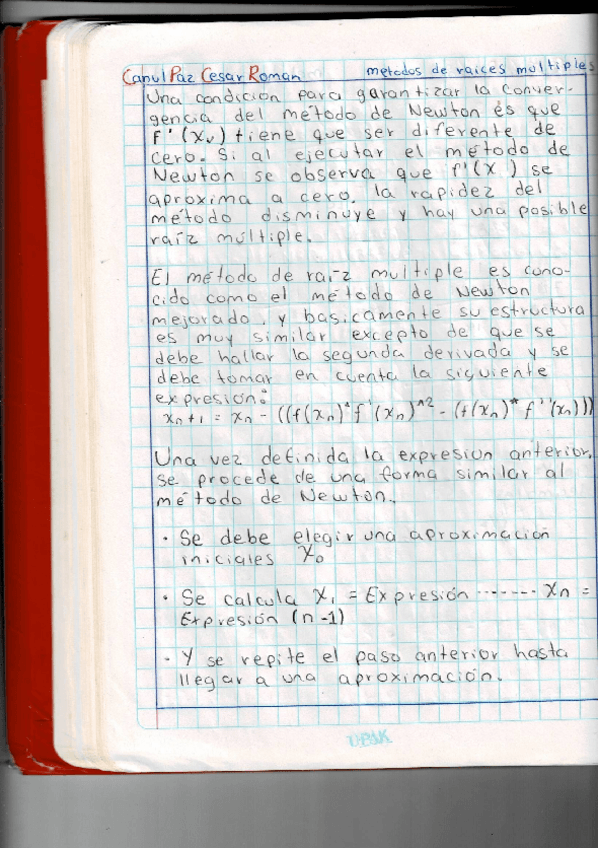 Canul Paz Cesar Roman metodos de raices multiples
Una condición para garantizar la conver-
gencia del método de Newton es que
f'(xᵥ) tiene que ser diferente de
cero. Si al ejecutar el metodo de
Newton se observa que f'(x ) se
aproxima a cero, la rapidez del
método disminuye y hay una posible
raíz múltiple.
El método de raíz multiple es cono-
cido como el método de Newton
mejorado, y basicamente su estructura
es muy similar excepto de que se
debe hallar la segunda derivada y se
debe tomar en cuenta la siguiente
expresion:
xn+1 = xn - ((f(xn)*f'(xn)^2 - (f(xn)*f''(xn)))
Una vez definida la expresion anterior,
se procede de una forma similar al
método de Newton.
· Se debe elegir una aproximación
iniciales X₀
· Se calcula X₁ = Expresión ------- Xn =
Expresión (n-1)
· Y se repite el paso anterior hasta
llegar a una aproximación.